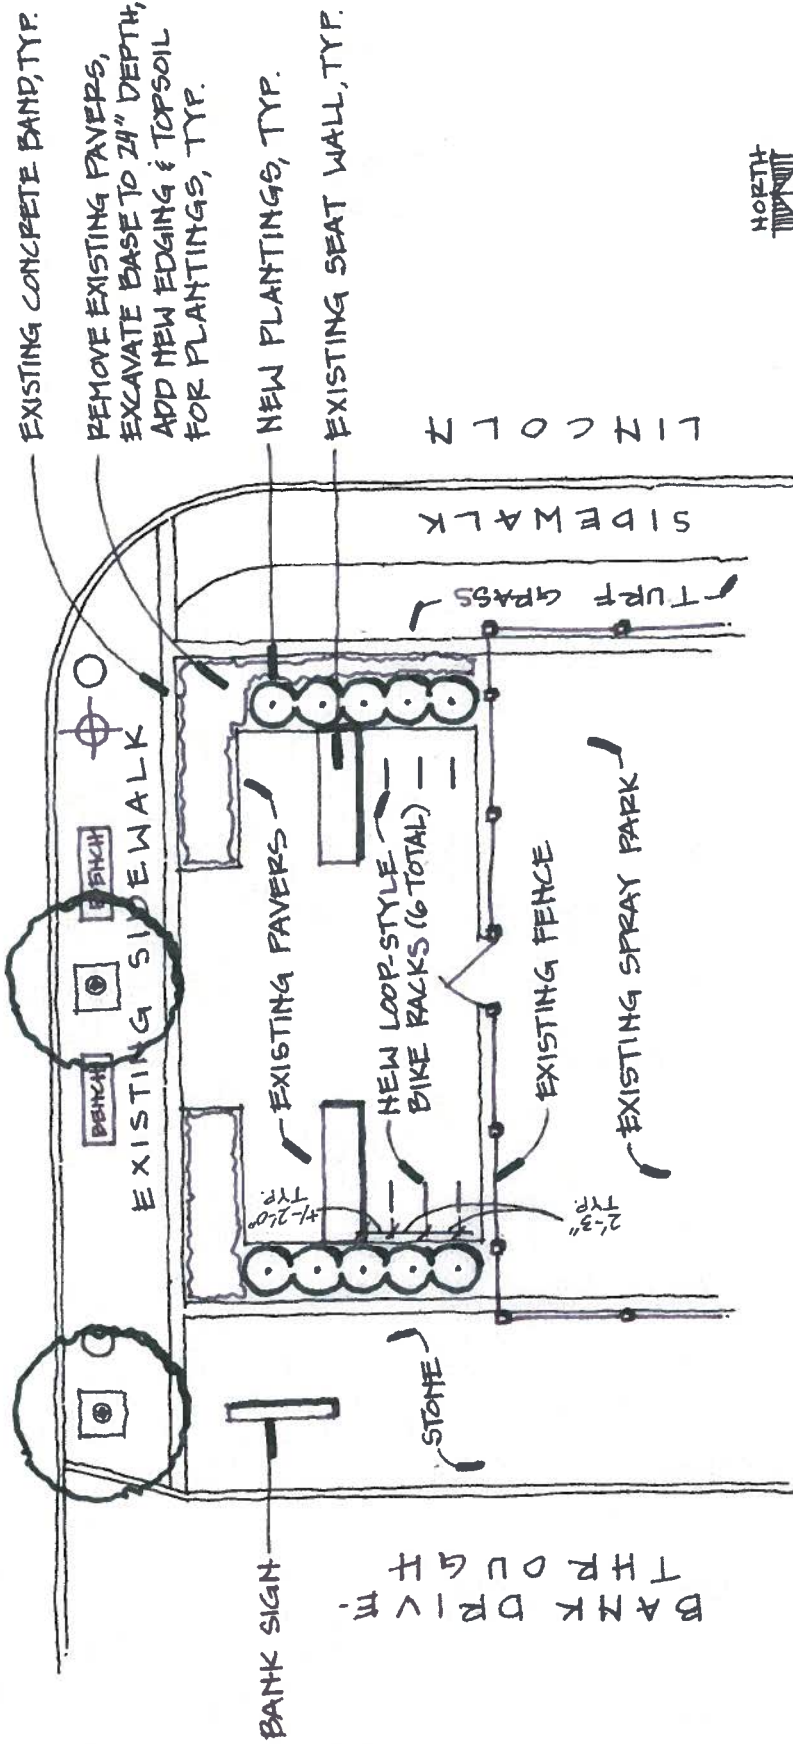 EXISTING CONCRETE BAND, TYP.
REMOVE EXISTING PAVERS,
EXCAVATE BASE TO 24" DEPTH,
ADD NEW EDGING & TOPSOIL
FOR PLANTINGS, TYP.
NEW PLANTINGS, TYP.
EXISTING SEAT WALL, TYP.
NORTH
LINCOLN
SIDEWALK
TURF GRASS
BENCH
BENCH
EXISTING SIDEWALK
EXISTING PAVERS
NEW LOOP-STYLE
BIKE RACKS (6 TOTAL)
EXISTING FENCE
EXISTING SPRAY PARK
+/-2'-0"
TYP.
2'-3"
TYP.
STONE
BANK SIGN
BANK DRIVE-
THROUGH